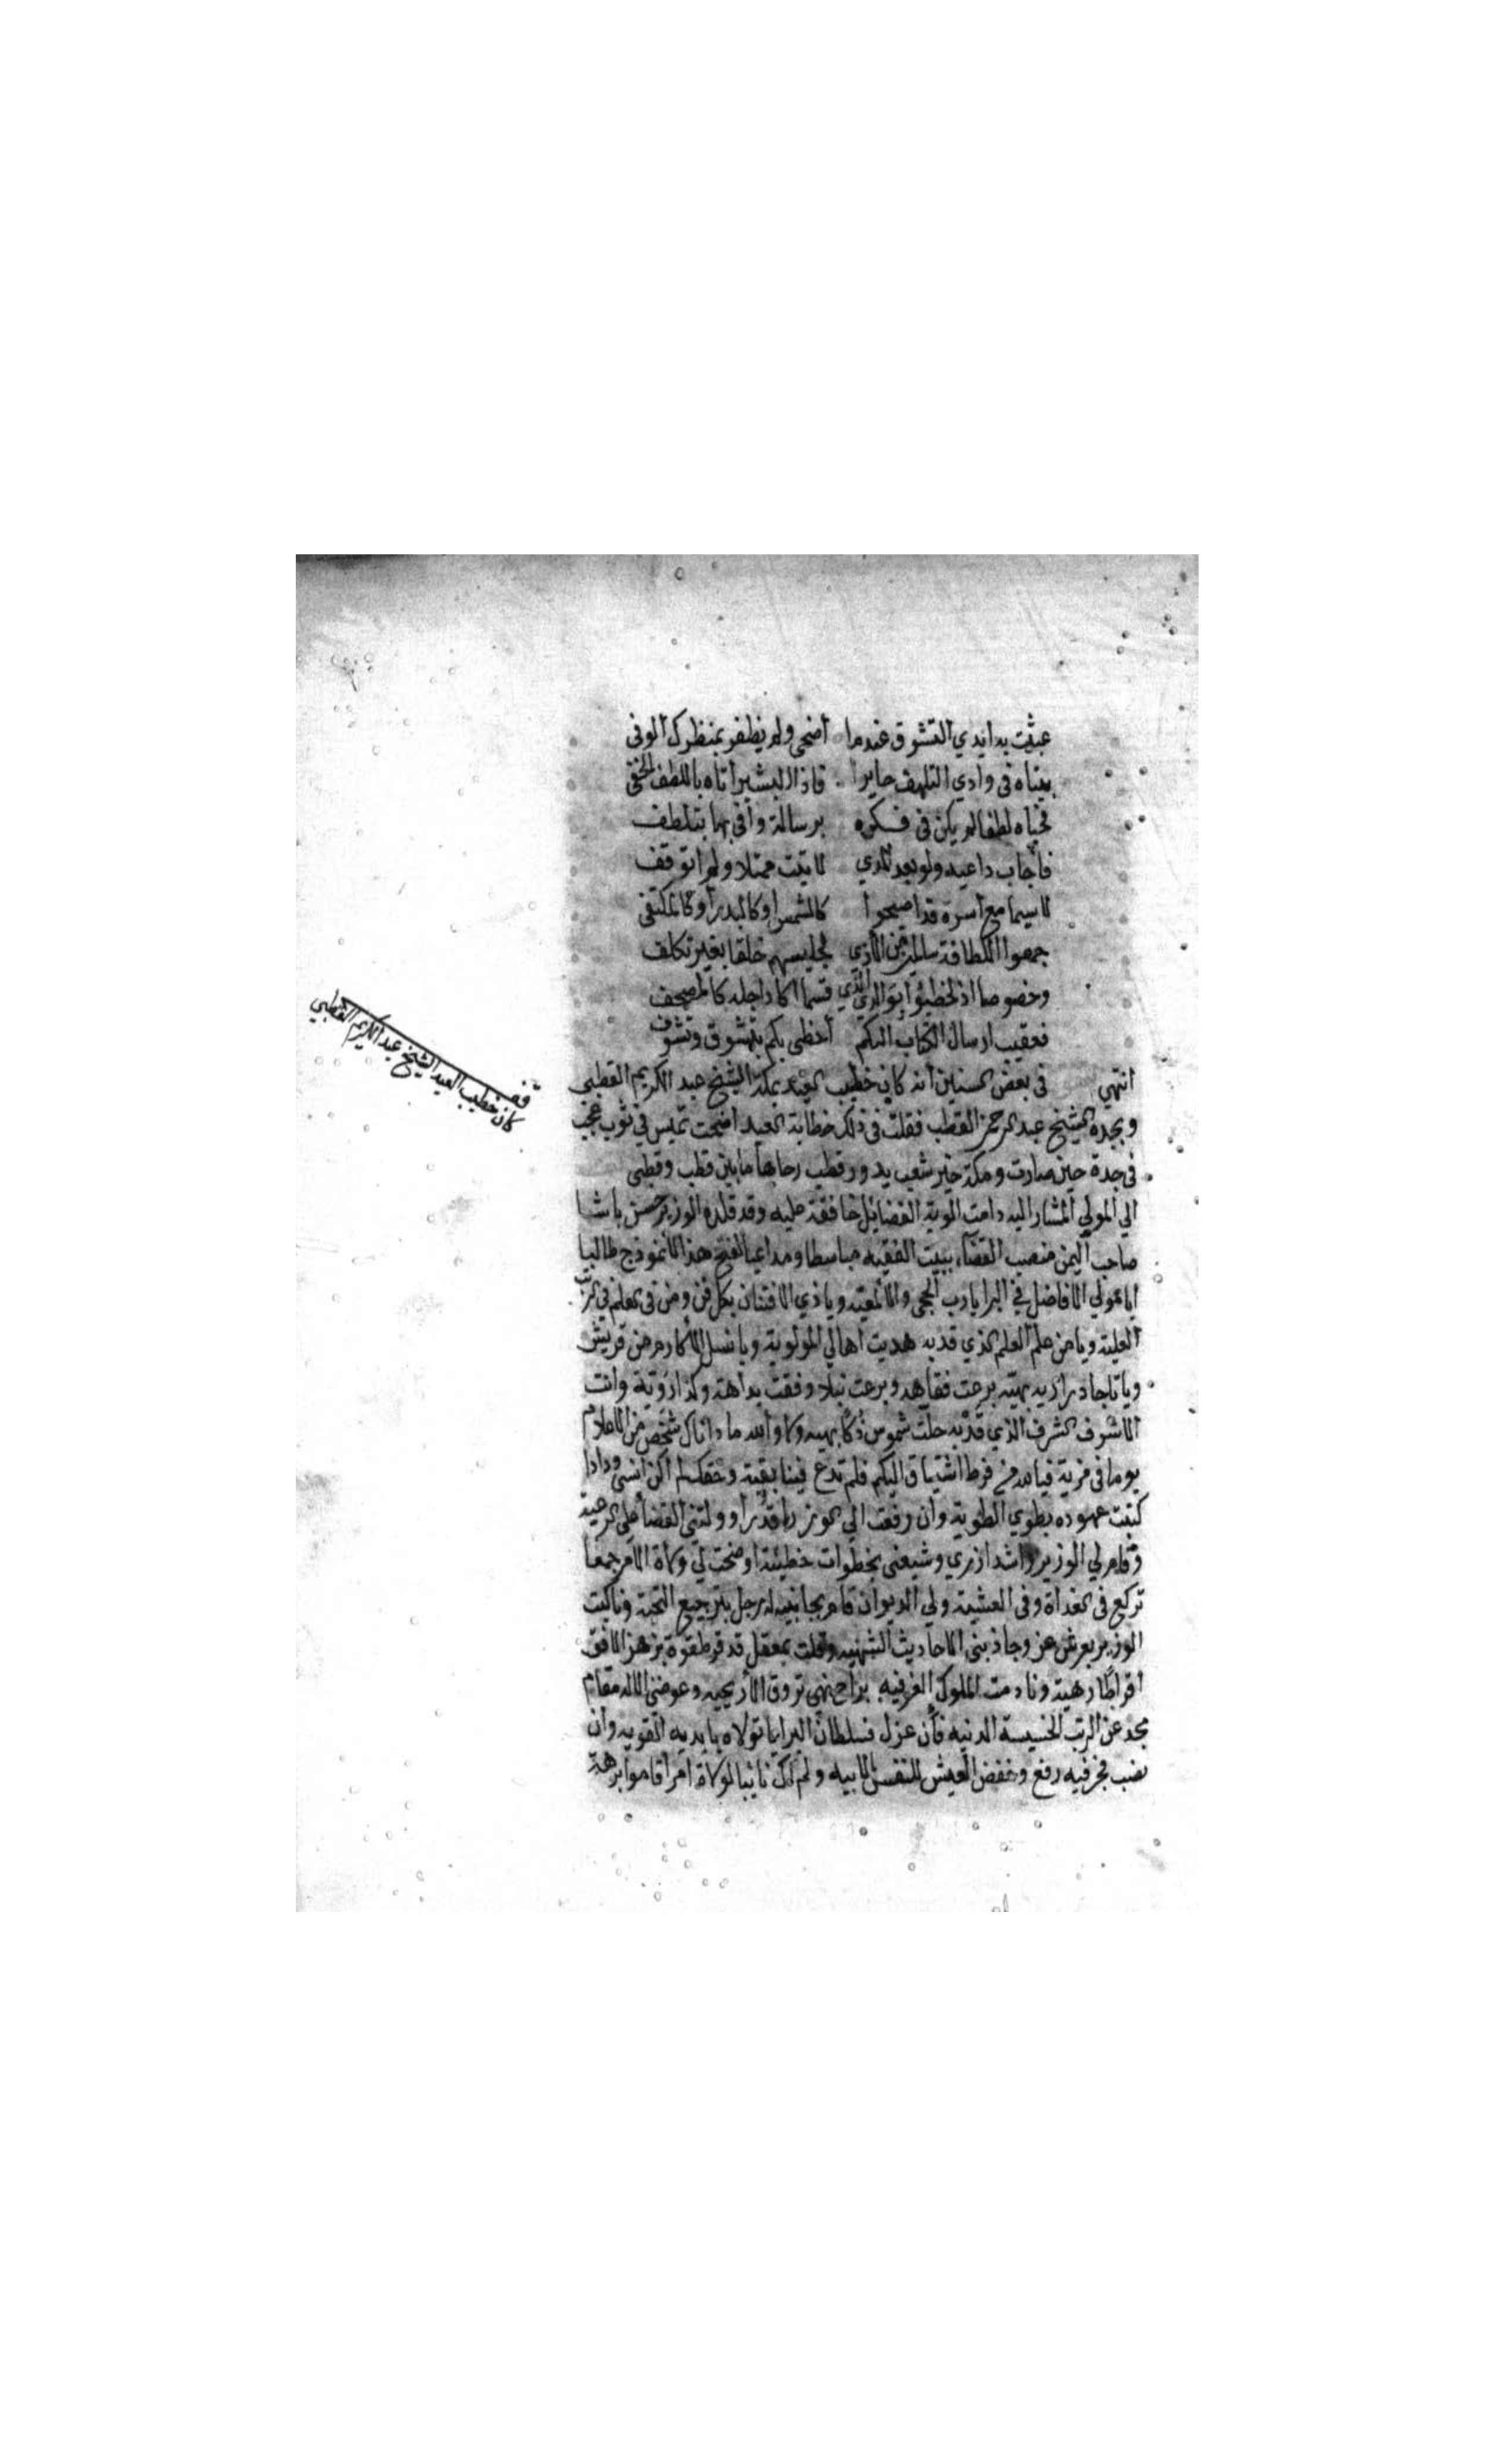 عبثت به ايدي التشوق عندما اضحى ولم يظفر بمنظرك الوفى
بيتاه فى وادي التلهف حايرا فاذا البشير أتاه باللطف الخفى
فحباه لطفا لم يكن فى فكره برسالة وافى بها بتلطف
فأجاب داعيه ولو بعد المدي لاتيت ممتلا ولم اتوقف
لا سيما مع أسرة قد اصبحوا كالشمس او كالبدر أو كالمكتفى
جمعوا اللطافة سالمين من الاذي لجليسهم خلقا بغير تكلف
وخصوصا اذ لخطيئوا الذي قسما اكاد اجله كالمصحف
فعقيب ارسال الكتاب اليكم أحظى بكم بتشوق وتشوف
انتهي فى بعض السنين أنه كان خطيب العيد بمكة الشيخ عبد الكريم القطبى
وبجده الشيخ عبد الرحمن القطب فقلت فى ذلك خطابة العيد اضحت تميس في ثوب عجب
فى جدة حين صارت ومكة خير شعب يدور قطب رحاها ما بين قطب وقطبى
الي المولي المشار اليه دامت الوية الفضايل خافقة عليه وقد قلده الوزير حسن باشا
صاحب اليمن منصب القضاء ببيت الفقيه مباسطا ومداعبا لفتح هذا الانموذج طالبا
أيا مولي الافاضل في البرايا رب الحجي والالمعيه ويا ذي الافتنان بكل فن ومن فى العلم فى الرتب
العلية ويا من علم العلم الذي قد به هديت أهالي المولوية ويا نسل الاكارم من قريش
ويا تاجا دراريه بهيه برعت فقاهه وبرعت نبلا وفقت بداهة وكذا روية وانت
الاشرف الشرف الذي قد به حلت شموس ذكا بهيه ولا والله ما داناك شخص من الاعلام
يوما فى مزية فيا لله من فرط اشتياق اليكم فلم تدع فينا بقية وحقك لم اكن انسى ودادا
كتبت عهوده بطوي الطوية وان رفعت الي العز قدرا وولتنى القضا على الرعية
وقام لي الوزير وشد ازري وشيعنى بخطوات خطيئة اوضحت لي ولاة الامر جمعا
تركع فى الغداة وفى العشية ولي الديوان قام بجانبيه له زجل بترجيع التحية وناكبت
الوزير بعرش عز وجاذبنى الاحاديث الشهيه وقلت بمعقل قد قرطقوة بزهر الافق
أقراطا زهية ونادمت الملوك الغرفيه براح نهى تروق الاريحيه وعوضنى الاله مقام
مجد عن الرتب الخسيسة الدنيه فان عزل فسلطان البرايا تولاه بايديه القويه وان
نصب فجر فيه رفع وخفض العيش للنفس الابيه ولم اك نايبا لولاة امر أقاموا برهة
قف
كان خطيب العيد الشيخ عبد الكريم القطبي